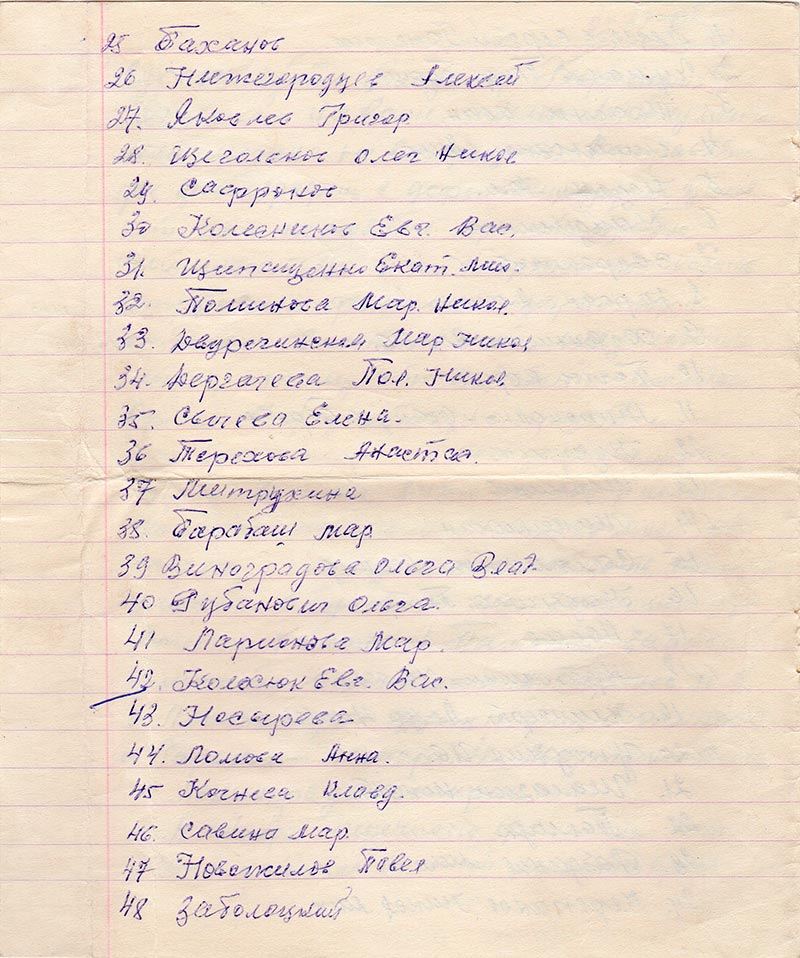 25 Баханов
26 Нижегородцев Алексей
27. Яковлев Григор
28. Щеголенов Олег Никол
29. Сафронов
30 Евг. Вас.
31. Екат. Мих.
32. Мар. Никол.
33. Двуречинская Мар Никол
34. Дергачева Пол. Никол
35. Сычева Елена.
36 Терехова Анастас.
37 Митрухина
38. Барабаш мар
39 Виноградова Ольга Влад.
40 Рубанович Ольга.
41 Ларионова Мар.
42. Евг. Вас.
43. Носырева
44. Ломова Анна.
45 Клавд.
46. Савина Мар.
47 Новожилов Павел
48 Заболоцкий